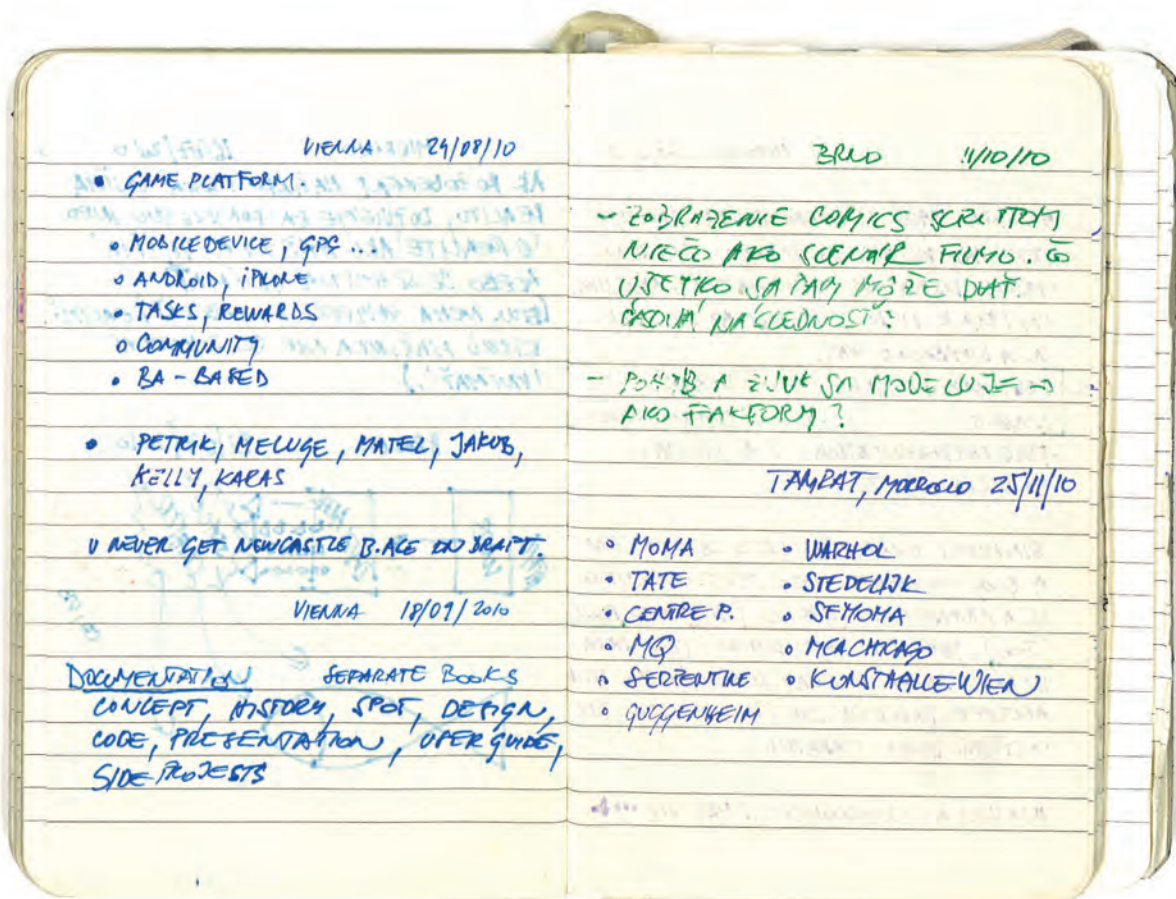 VIENNA 24/08/10
• GAME PLATFORM.
• MOBILE DEVICE, GPS ...
• ANDROID, iPHONE
• TASKS, REWARDS
• COMMUNITY
• BA-BASED
• PETRIK, MELUGE, MATEJ, JAKUB,
KELLY, KARAS
NEVER GET NEWCASTLE B. ALE ON DRAFT.
VIENNA 18/09/2010
DOCUMENTATION SEPARATE BOOKS
CONCEPT, HISTORY, SPOT, DESIGN,
CODE, PRESENTATION, USER GUIDE,
SIDE PROJESTS
BRNO 11/10/10
- ZOBRAZENIE COMICS SCRIPTOM
NIEČO AKO SCENÁR FILMU. ČO
VŠETKO SA TAM MÔŽE DIAŤ.
ČASOVÁ NÁSLEDNOSŤ?
- POHYB A ZVUK SA MODELUJE →
AKO ?
MOROCCO 25/11/10
• MOMA
• TATE
• CENTRE P.
• MQ
• SERPENTINE
• GUGGENHEIM
• WARHOL
• STEDELIJK
• SFMOMA
• MCA CHICAGO
• KUNSTHALLE WIEN